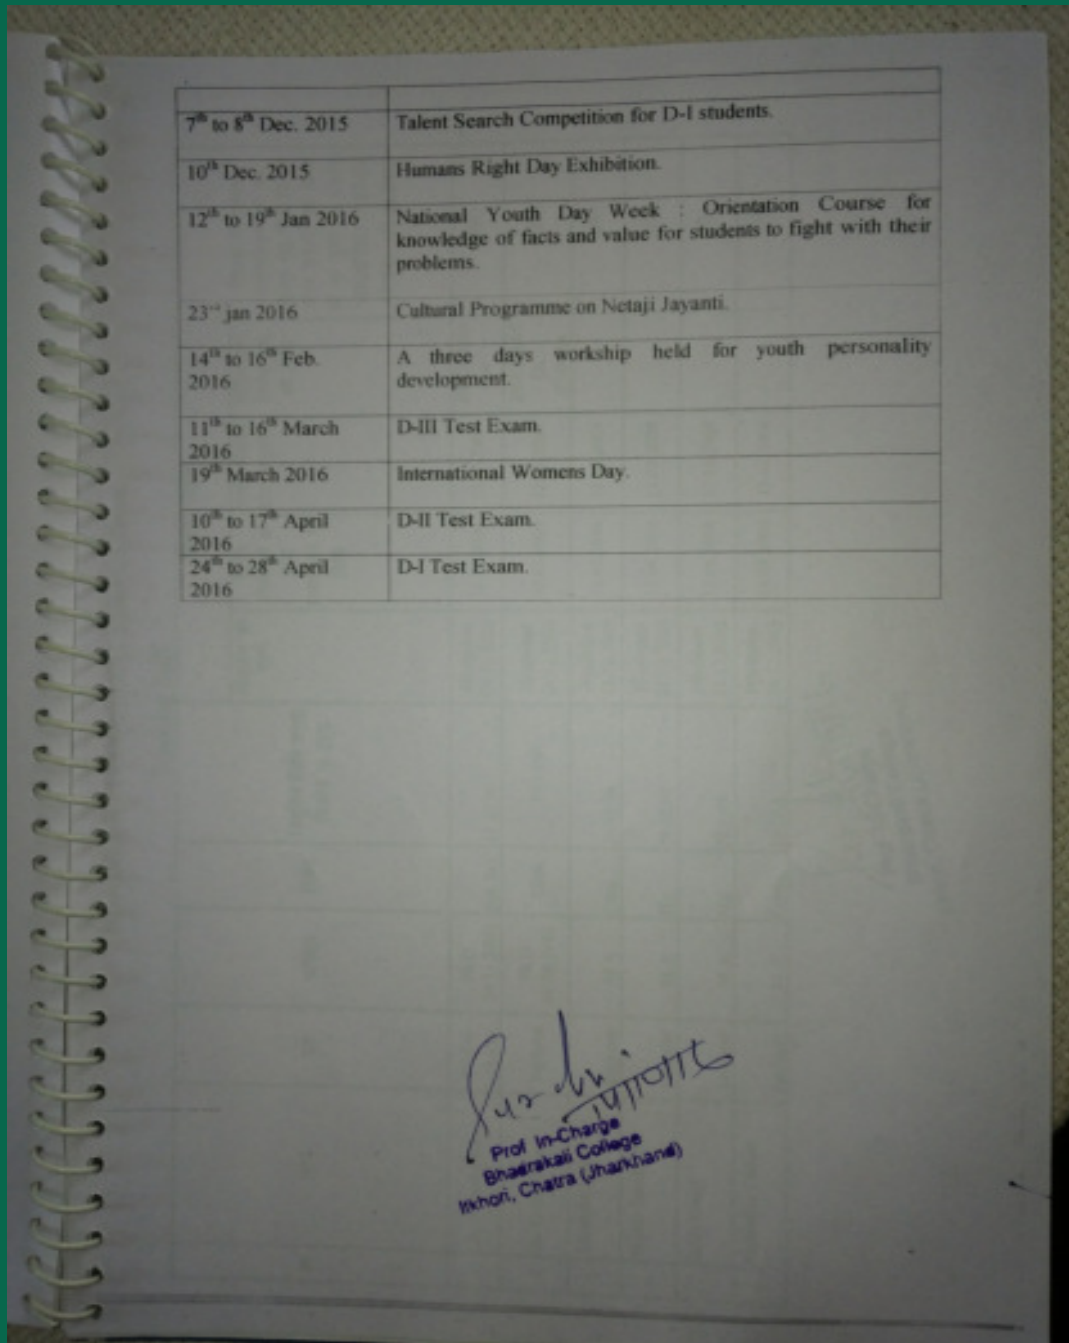 7th to 8th Dec. 2015 Talent Search Competition for D-I students.
10th Dec. 2015 Humans Right Day Exhibition.
12th to 19th Jan 2016 National Youth Day Week : Orientation Course for
knowledge of facts and value for students to fight with their
problems.
23rd jan 2016 Cultural Programme on Netaji Jayanti.
14th to 16th Feb. A three days workship held for youth personality
2016 development.
11th to 16th March D-III Test Exam.
2016
19th March 2016 International Womens Day.
10th to 17th April D-II Test Exam.
2016
24th to 28th April D-I Test Exam.
2016
14/10/16
Prof In-Charge
Bhadrakali College
Itkhori, Chatra (Jharkhand)